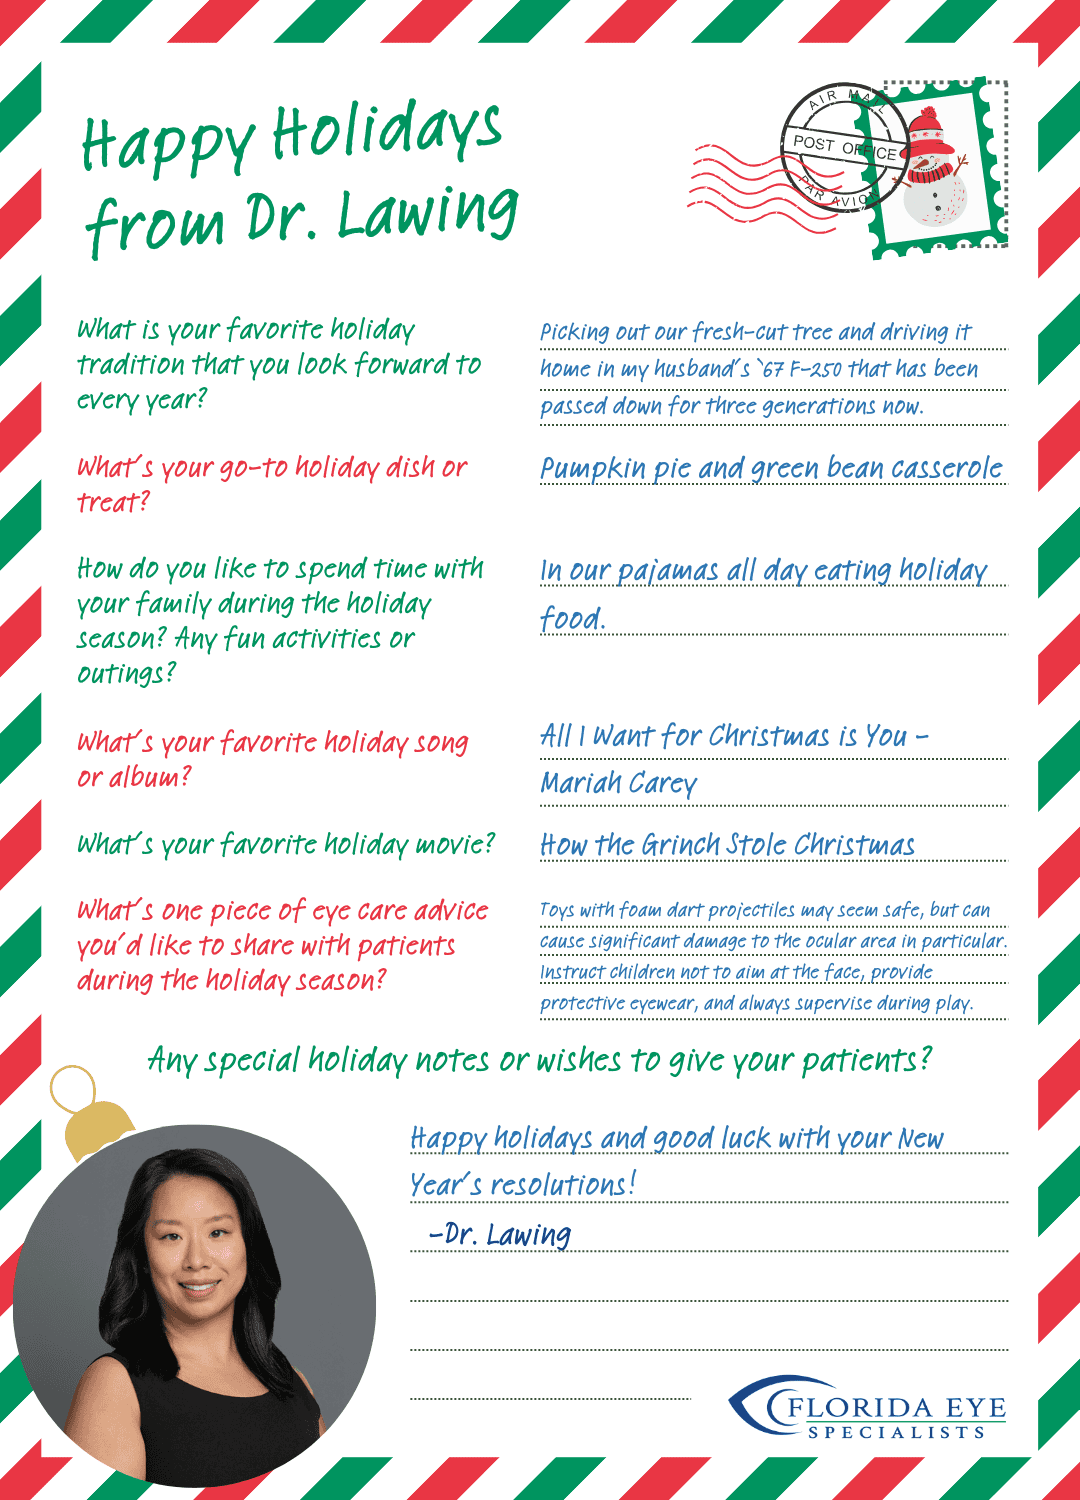 Happy Holidays
from Dr. Lawing
AIR MAIL
POST OFFICE
PAR AVION
What is your favorite holiday
tradition that you look forward to
every year?
Picking out our fresh-cut tree and driving it
home in my husband's `67 F-250 that has been
passed down for three generations now.
What's your go-to holiday dish or
treat?
Pumpkin pie and green bean casserole
How do you like to spend time with
your family during the holiday
season? Any fun activities or
outings?
In our pajamas all day eating holiday
food.
What's your favorite holiday song
or album?
All I Want for Christmas is You -
Mariah Carey
What's your favorite holiday movie?
How the Grinch Stole Christmas
What's one piece of eye care advice
you'd like to share with patients
during the holiday season?
Toys with foam dart projectiles may seem safe, but can
cause significant damage to the ocular area in particular.
Instruct children not to aim at the face, provide
protective eyewear, and always supervise during play.
Any special holiday notes or wishes to give your patients?
Happy holidays and good luck with your New
Year's resolutions!
-Dr. Lawing
FLORIDA EYE
SPECIALISTS